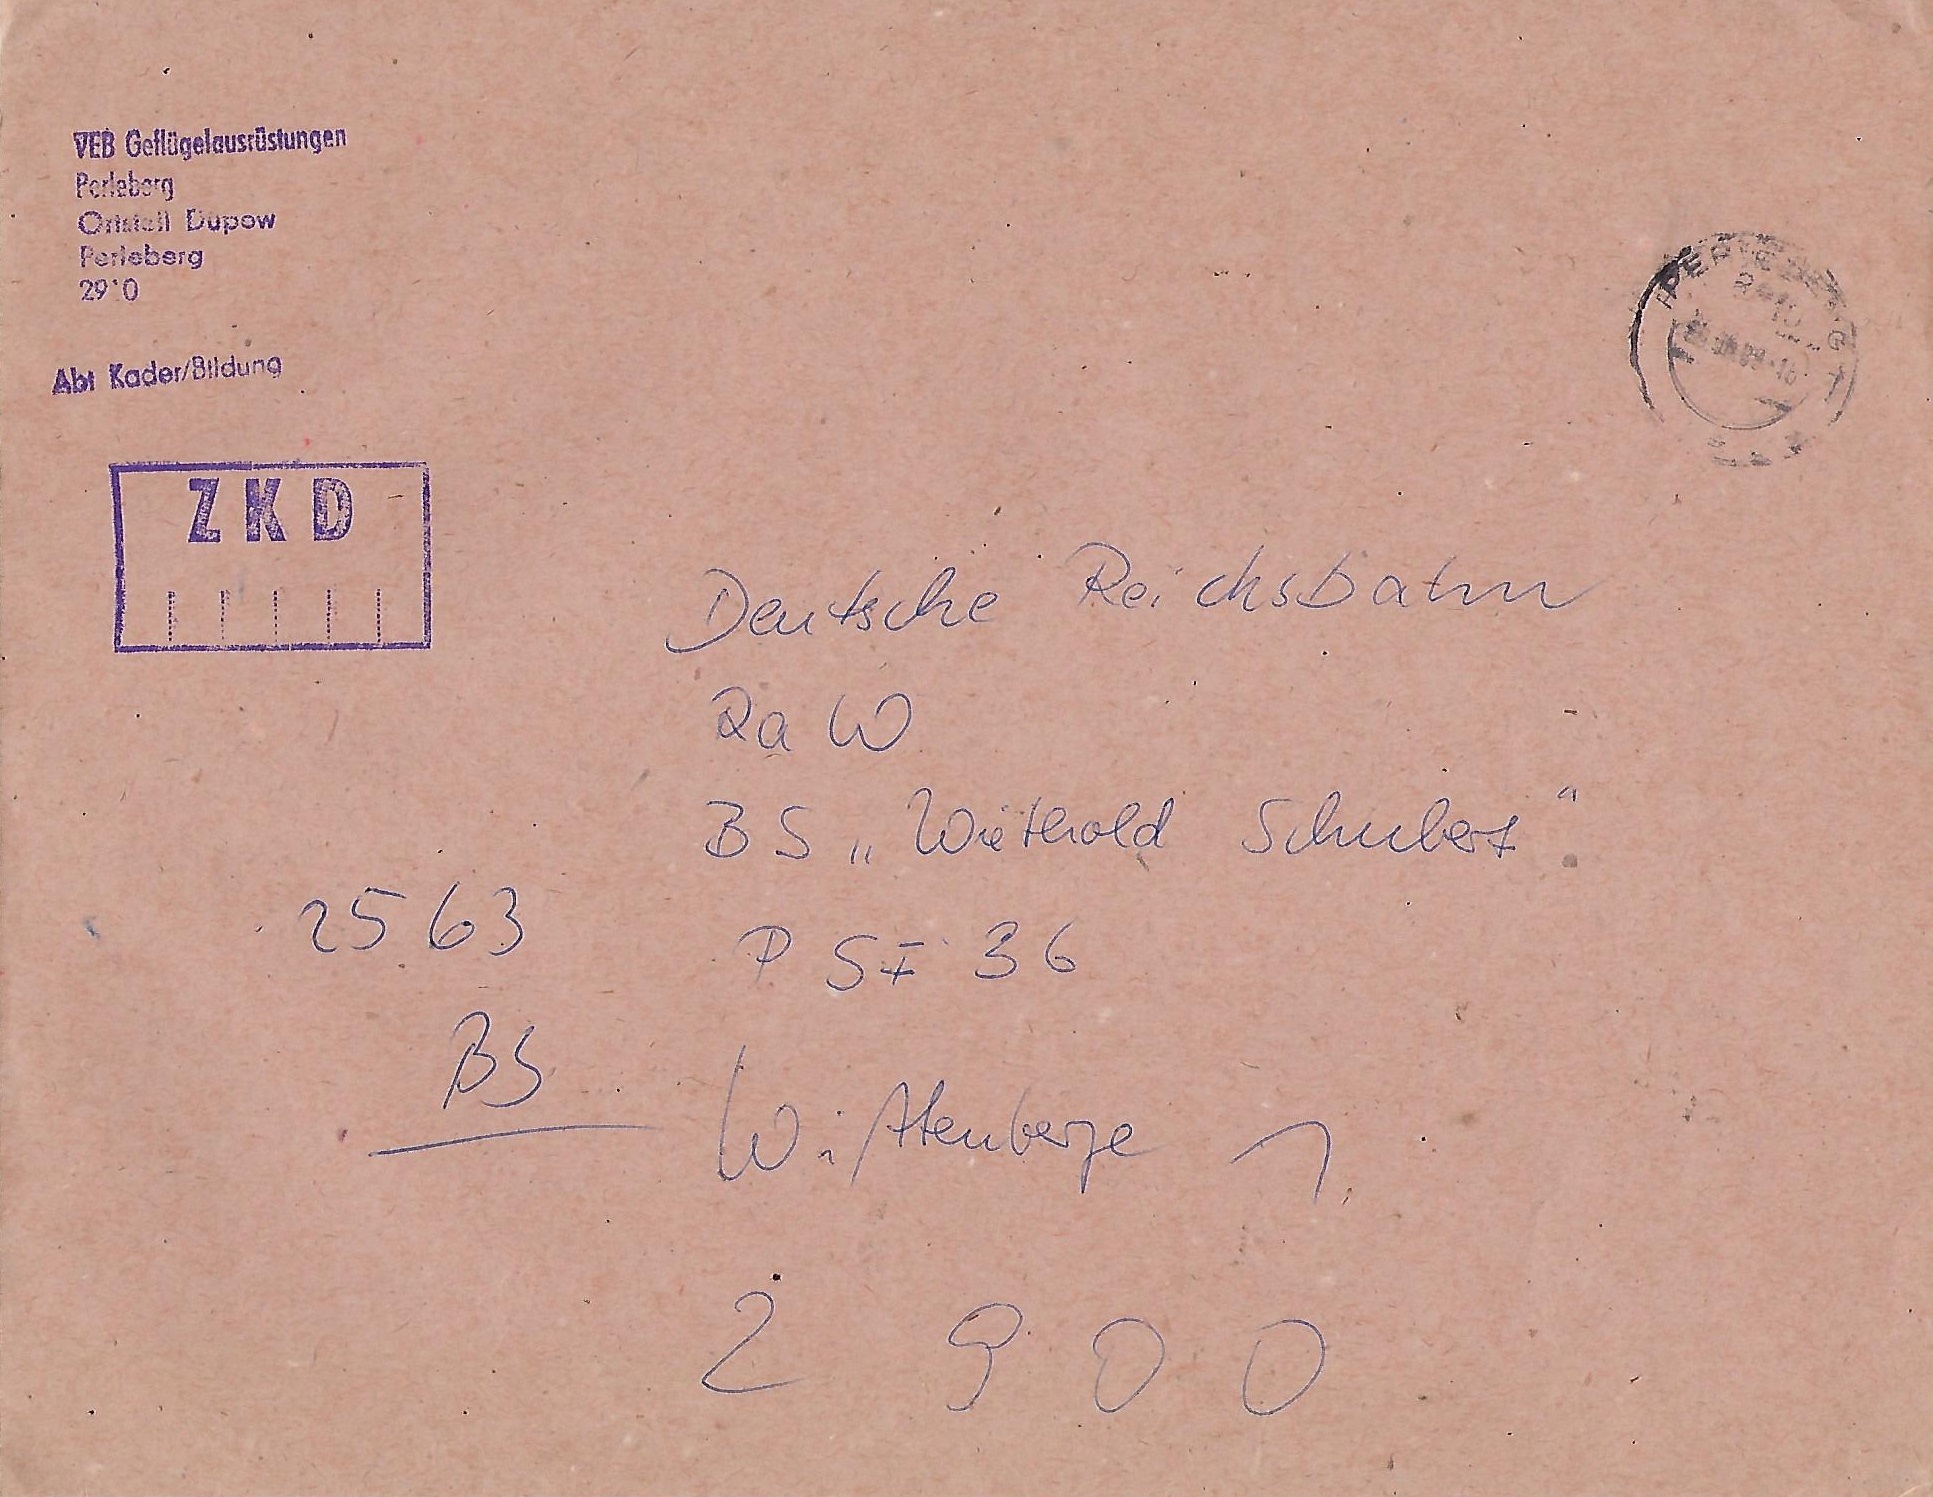 VEB Geflügelausrüstungen
Perleberg
Ortsteil Düpow
Perleberg
29 0
Abt Kader/Bildung
ZKD
PERLEBERG 1
Deutsche Reichsbahn
RaW
BS „Wiethold Schubert“
2563
PSF 36
BS
Wittenberge 1.
2900